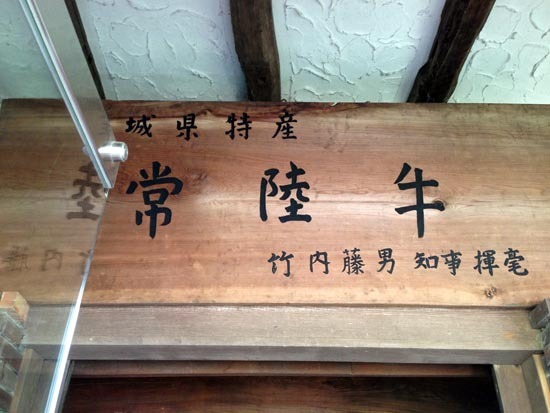 城県特産
常陸牛
竹内藤男 知事揮毫